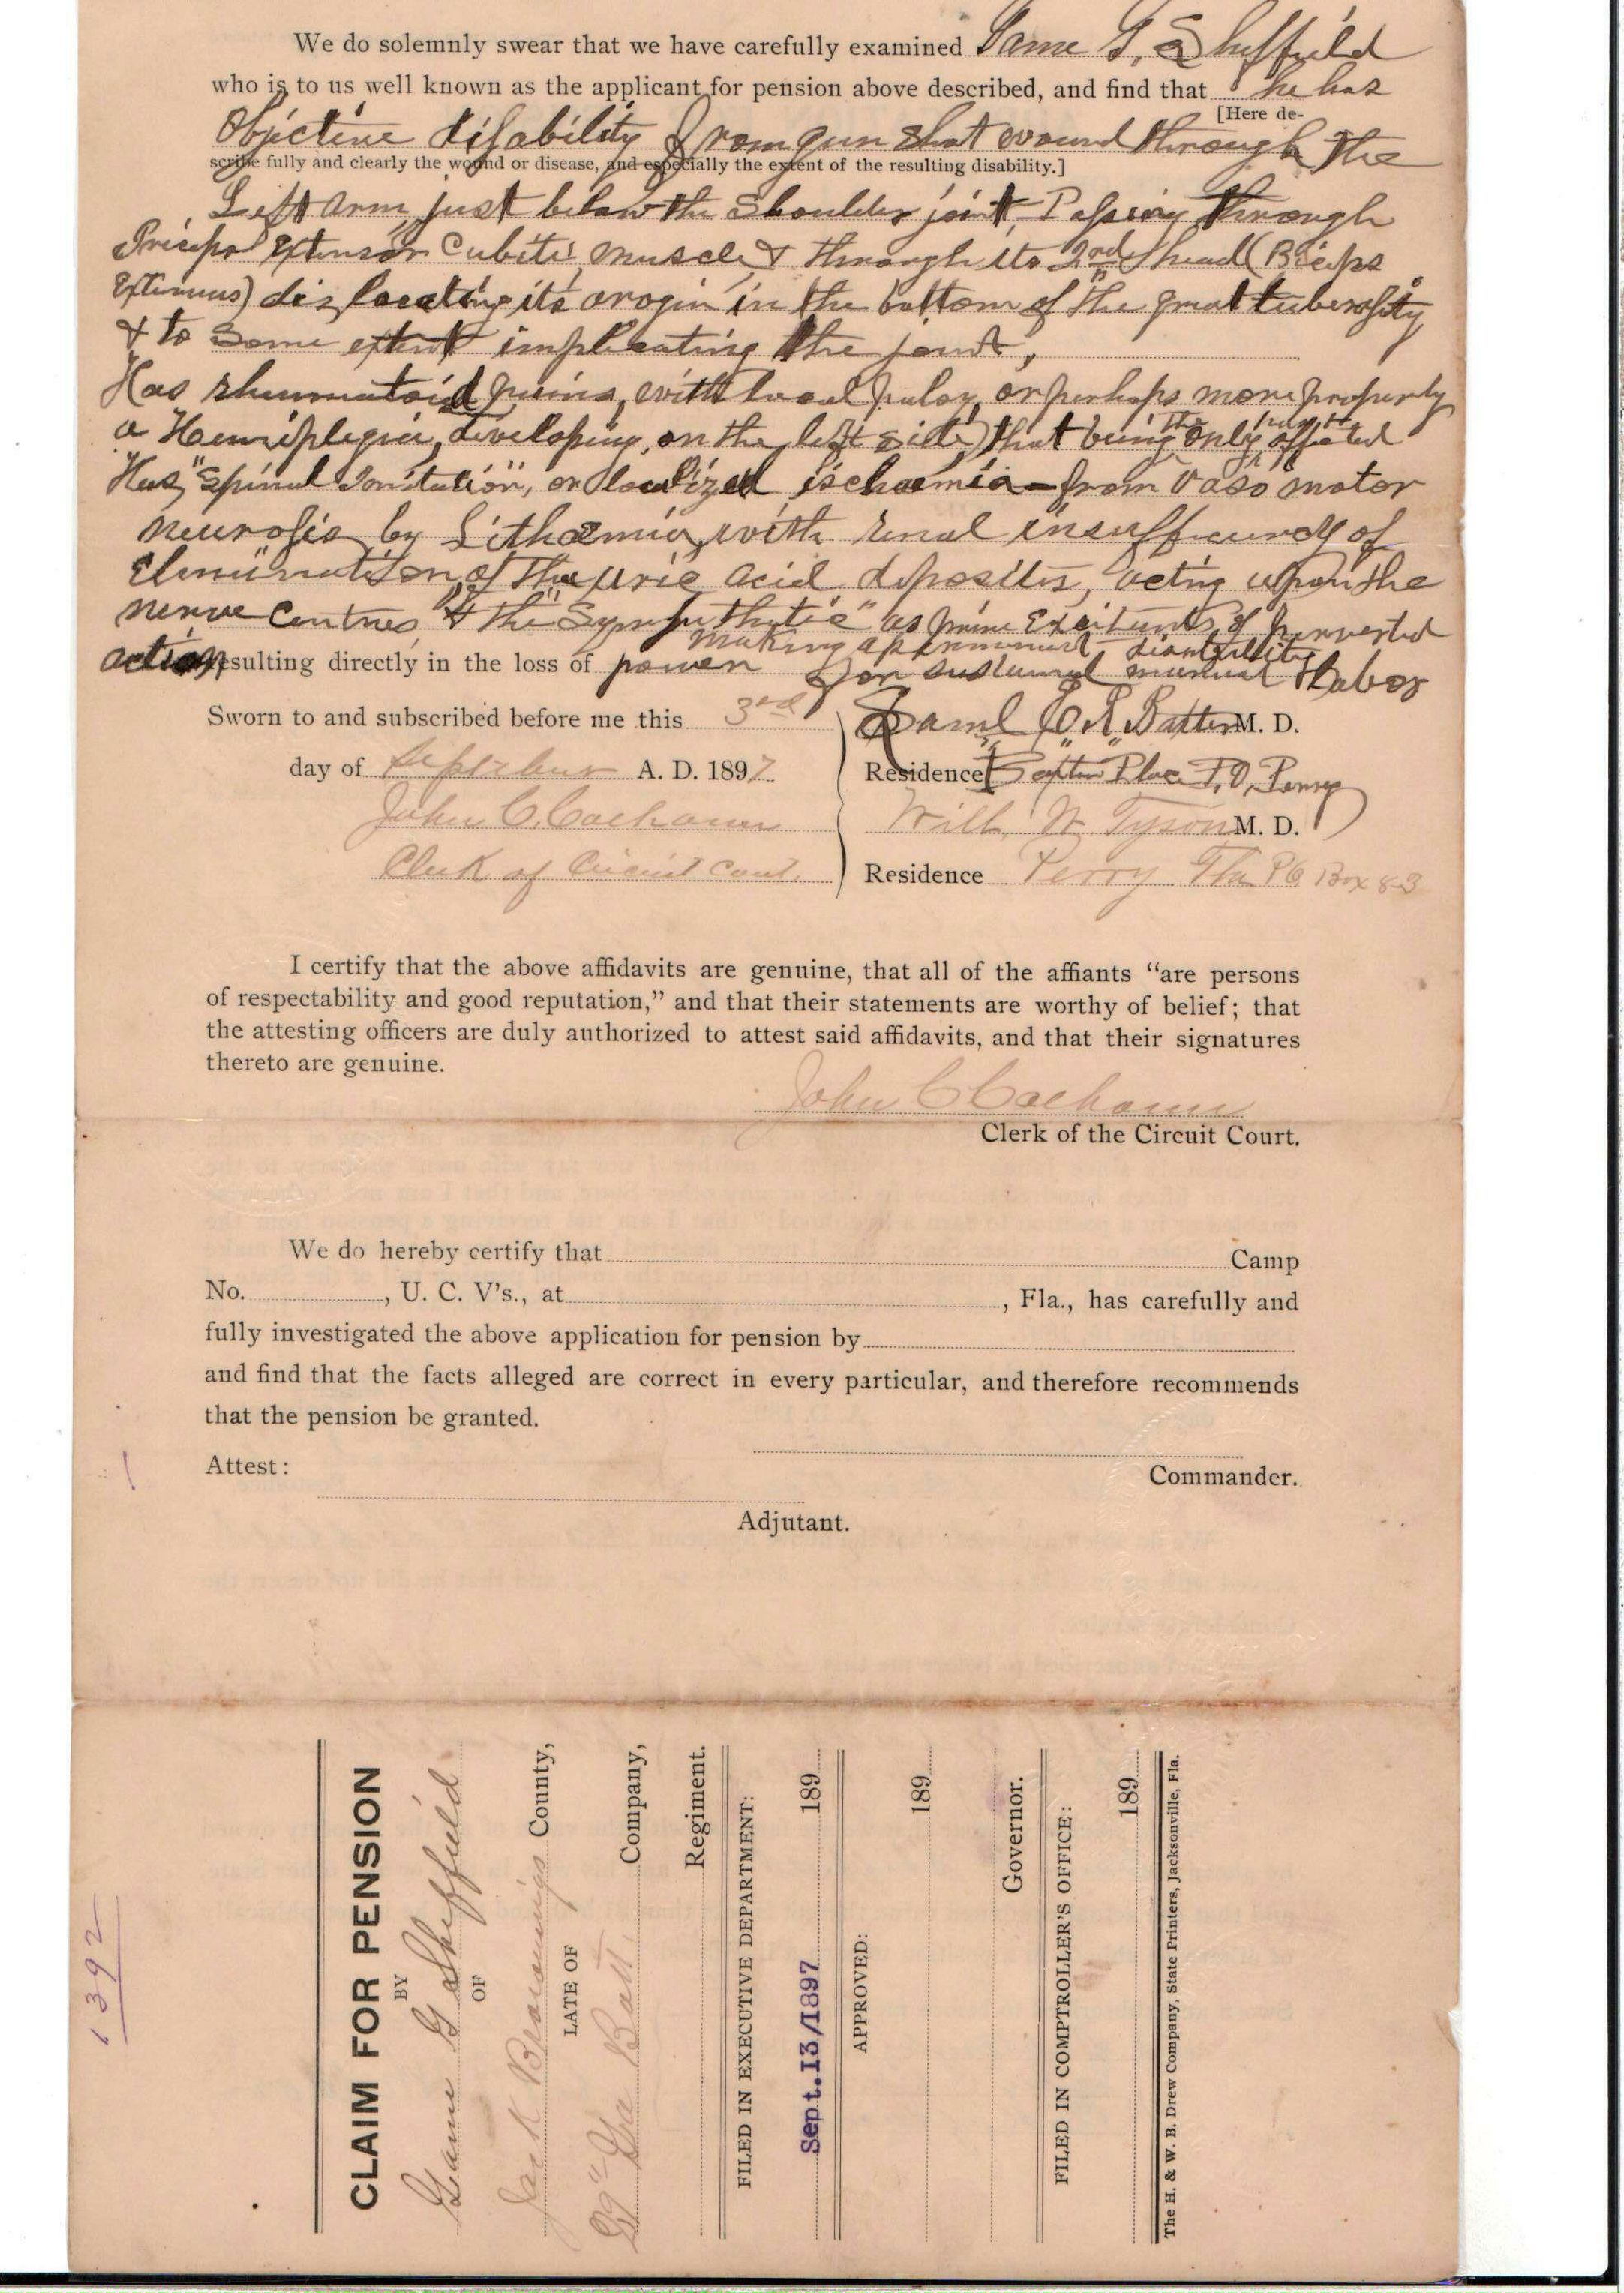 We do solemnly swear that we have carefully examined Sheffield
who is to us well known as the applicant for pension above described, and find that he has
[Here de-
Objective disability from gun shot wound through the
scribe fully and clearly the wound or disease, and especially the extent of the resulting disability.]
Left arm, just below the Shoulder joint, Passing through
Triceps Extensor Cubiti, muscle & through its 2nd head (Biceps
Externus) dislocating its orogin in the bottom of the great tuberosity
& to some extent implicating the joint,
Has rheumatoid pains, with local palsy, or perhaps more properly
a Hemiplegia, developing, on the left side, that being the only affected
Has, "spinal Irritation", or localized ischaemia - from Vaso motor
neurosis by Lithæmia, with renal insufficiency of
Elimination of the uric acid deposits, acting upon the
nerve Centres, & the "Sympathetic" as prime Excitants of perverted
action resulting directly in the loss of power making a permanent disability
for sustained manual labor
Sworn to and subscribed before me this 3rd
Saml Baxter M. D.
day of September A. D. 1897
Residence Baxter Place P.O. Perry
John C. Calhoun
Will. W. Tyson M. D.
Clerk of Circuit Court.
Residence Perry Fla PO Box 83
I certify that the above affidavits are genuine, that all of the affiants "are persons
of respectability and good reputation," and that their statements are worthy of belief; that
the attesting officers are duly authorized to attest said affidavits, and that their signatures
thereto are genuine.
John C Calhoun
Clerk of the Circuit Court.
We do hereby certify that Camp
No. , U. C. V's., at , Fla., has carefully and
fully investigated the above application for pension by
and find that the facts alleged are correct in every particular, and therefore recommends
that the pension be granted.
Attest:
Commander.
Adjutant.
1392
CLAIM FOR PENSION
BY
G Sheffield
OF
Jack Brownings County,
LATE OF
Ga Batt. Company,
Regiment.
FILED IN EXECUTIVE DEPARTMENT:
Sept. 13/1897 189
APPROVED:
189
Governor.
FILED IN COMPTROLLER'S OFFICE:
189
The H. & W. B. Drew Company, State Printers, Jacksonville, Fla.